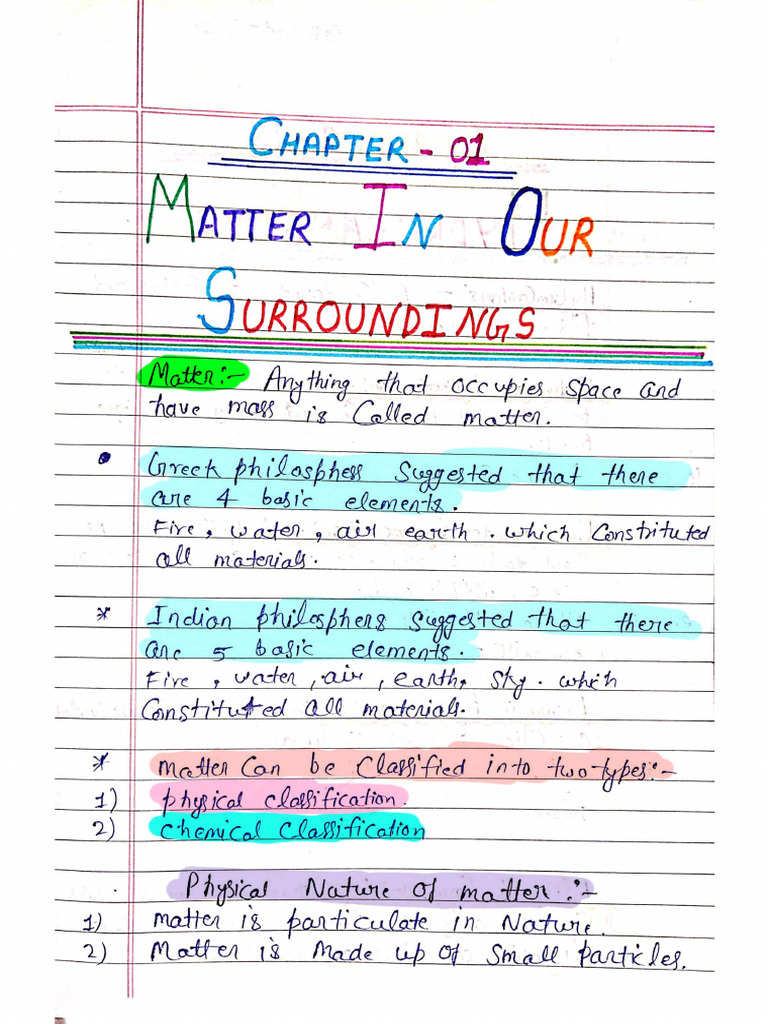 CHAPTER - 01
MATTER IN OUR
SURROUNDINGS
Matter:- Anything that occupies space and
have mass is Called matter.
• Greek philosphess suggested that there
are 4 basic elements.
Fire, water, air earth. which Constrituted
all materials.
* Indian philosphers suggested that there
are 5 basic elements.
Fire, water, air, earth, sky. which
Constituted all materials.
* Matter Can be Classified into two types:-
1) physical classification.
2) Chemical Classification
Physical Nature of matter:-
1) matter is particulate in Nature.
2) Matter is Made up of small particles.